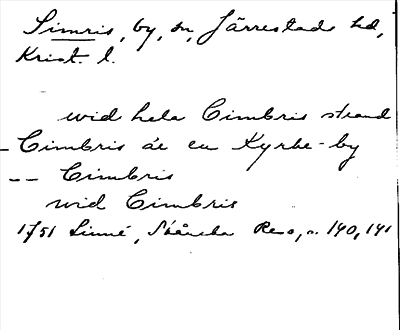 Simris, by, sn, Järrestads hd,
Krist. l.
wid hela Cimbris strand
- Cimbris är en Kyrke-by
-- Cimbris
wid Cimbris
1751 Linné, Skånska Resa, s. 140, 141